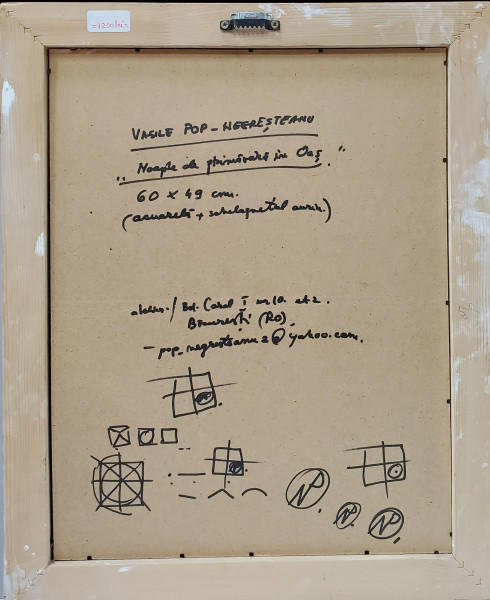 =1200lei=
VASILE POP-NEGREȘTEANU
"Noapte de primăvară în Oaș."
60 x 49 cm.
(acuarelă +
atelier/ Bd. Carol I nr 10. et 2.
București (RO)
- pop_negresteanu2@yahoo.com.